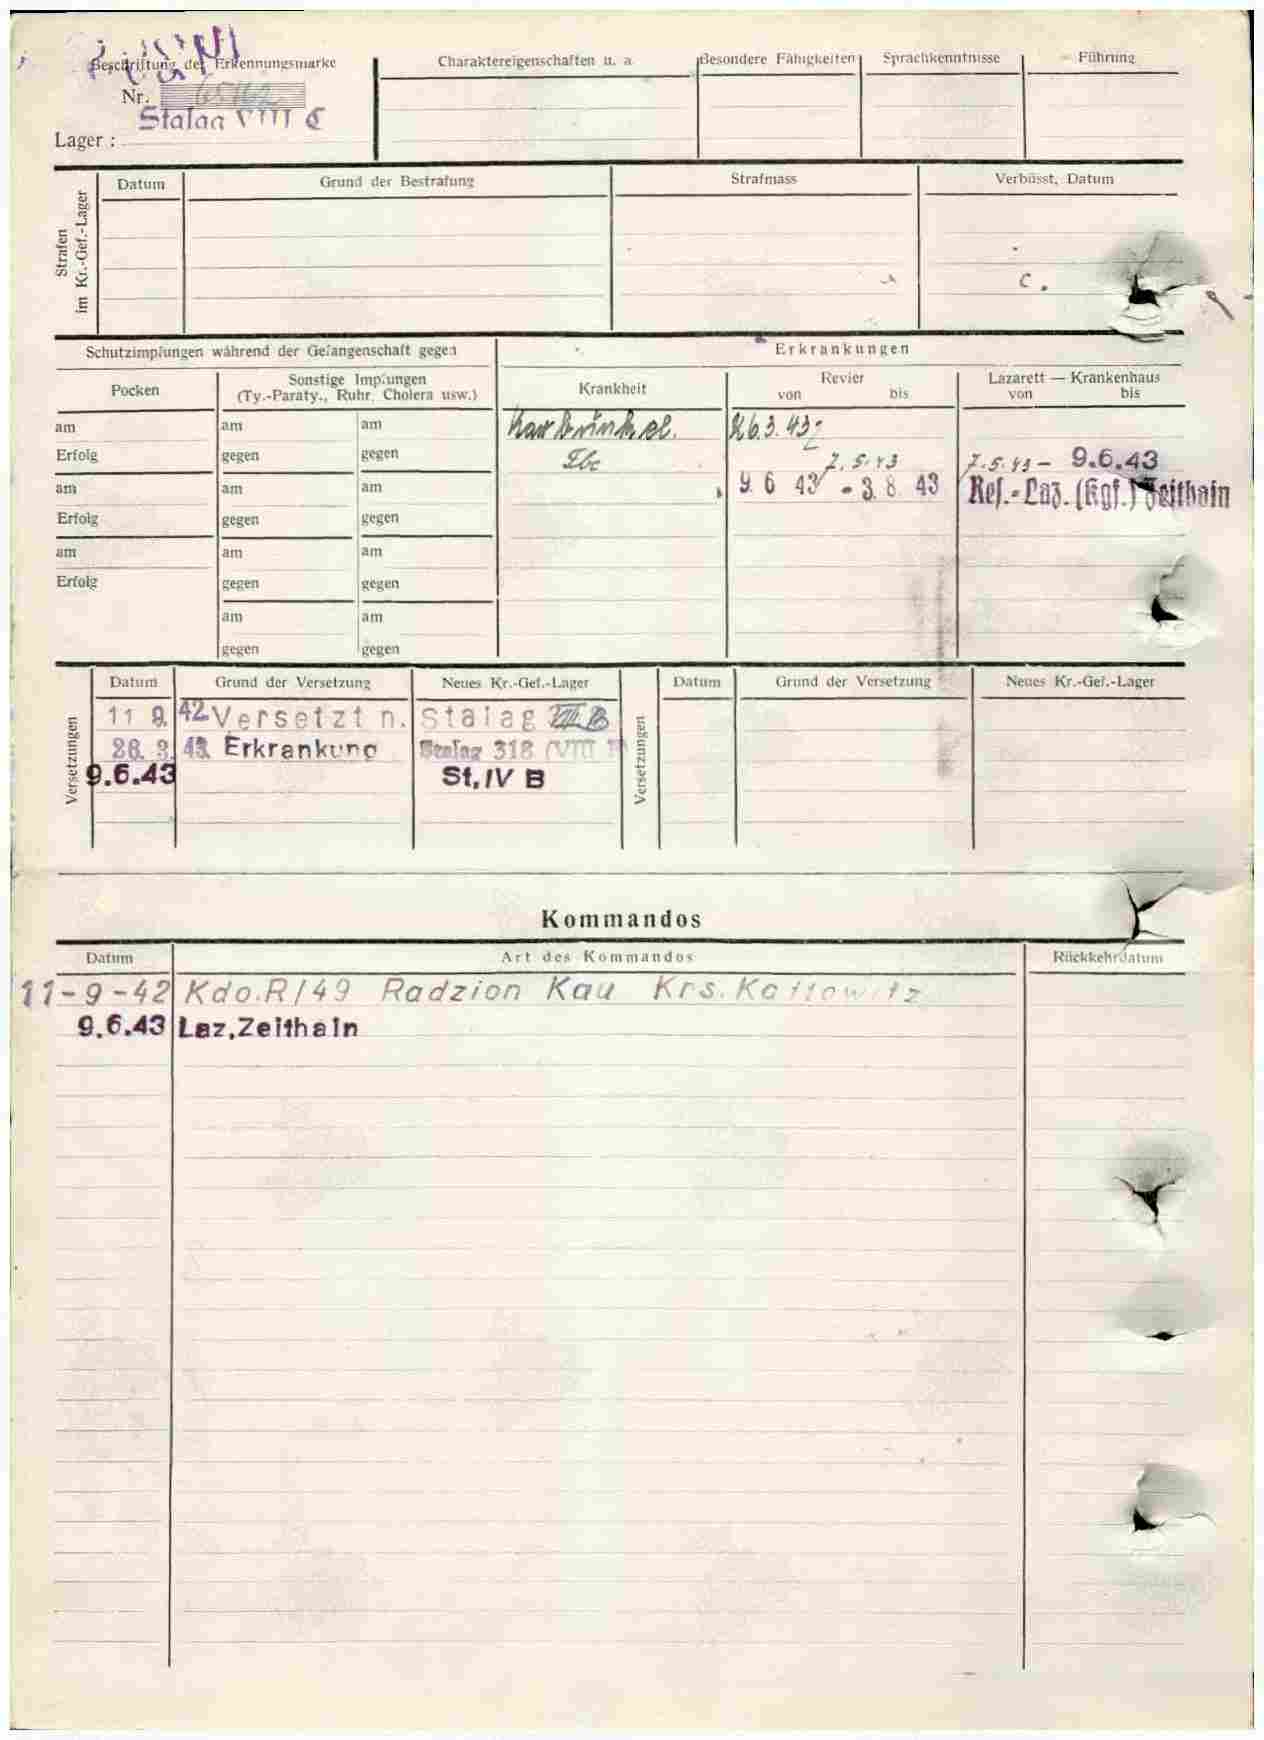 Beschriftung der Erkennungsmarke
Nr. 65162
Stalag VIII C
Lager :
Charaktereigenschaften u. a
Besondere Fähigkeiten
Sprachkenntnisse
Führung
Strafen
im Kr.-Gef.-Lager
Datum
Grund der Bestrafung
Strafmass
Verbüsst, Datum
c.
Schutzimpfungen während der Gefangenschaft gegen
Erkrankungen
Pocken
Sonstige Impfungen
(Ty.-Paraty., Ruhr, Cholera usw.)
Krankheit
Revier
von bis
Lazarett — Krankenhaus
von bis
am am am Karbunkel. 26.3.43
Erfolg gegen gegen Tbc 7.5.43 7.5.43 - 9.6.43
am am am 9. 6 43 - 3. 8. 43 Res.-Laz. (Kgf.) Zeithain
Erfolg gegen gegen
am am am
Erfolg gegen gegen
am am
gegen gegen
Versetzungen
Datum Grund der Versetzung Neues Kr.-Gef.-Lager
11 9. 42 Versetzt n. Stalag VIII B
26. 3. 43. Erkrankung Stalag 318 (VIII
9.6.43 St. IV B
Versetzungen
Datum Grund der Versetzung Neues Kr.-Gef.-Lager
Kommandos
Datum Art des Kommandos Rückkehrdatum
11-9-42 Kdo.R/49 Radzion Kau Krs. Kattowitz
9.6.43 Laz. Zeithain